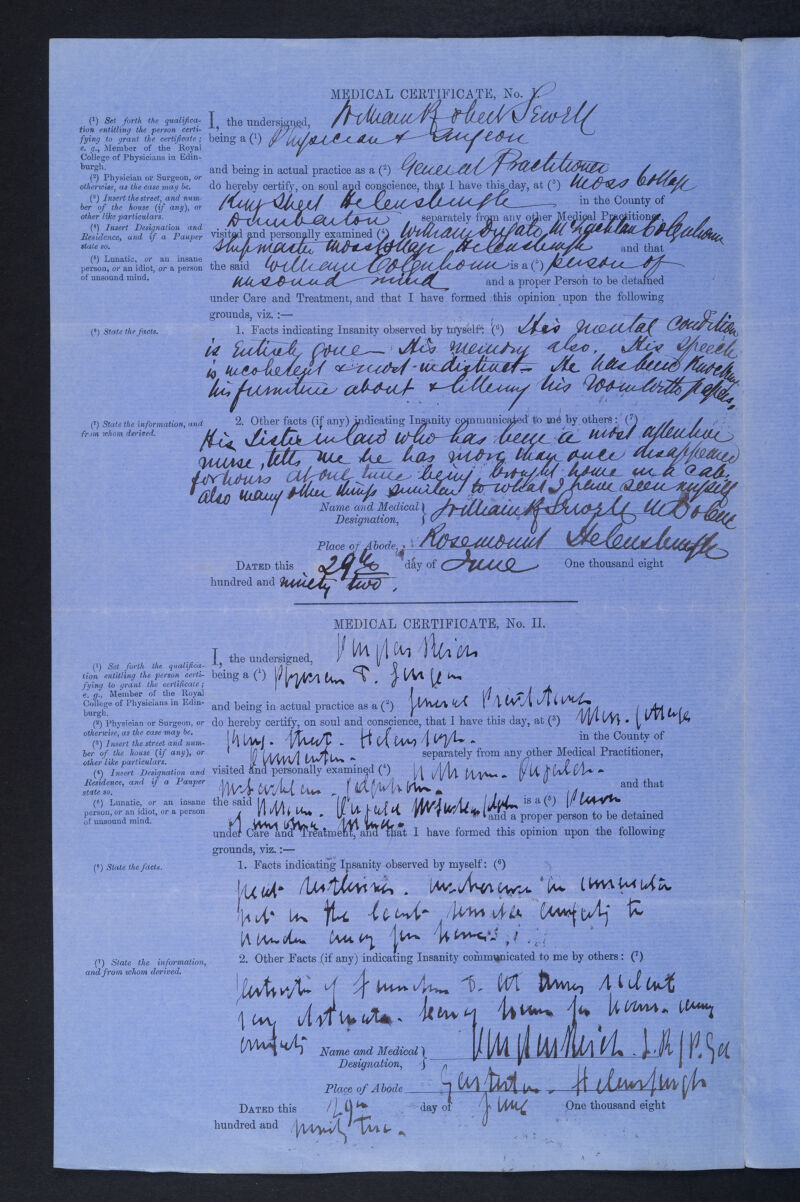 MEDICAL CERTIFICATE, No. I.
(¹) Set forth the qualifica-
tion entitling the person certi-
fying to grant the certificate;
e. g., Member of the Royal
College of Physicians in Edin-
burgh.
(²) Physician or Surgeon, or
otherwise, as the case may be.
(³) Insert the street, and num-
ber of the house (if any), or
other like particulars.
(⁴) Insert Designation and
Residence, and if a Pauper
state so.
(⁵) Lunatic, or an insane
person, or an idiot, or a person
of unsound mind.
I, the undersigned, William Robert Sewell
being a (¹) Physician & Surgeon
and being in actual practice as a (²) General Practitioner
do hereby certify, on soul and conscience, that I have this day, at (³) Moss Cottage
King Street Helensburgh in the County of
Dumbarton separately from any other Medical Practitioner,
visited and personally examined (⁴) William Dugald McLachlan Colquhoun
Shipmaster Moss Cottage, Helensburgh and that
the said William Colquhoun is a (⁵) person of
unsound mind and a proper Person to be detained
under Care and Treatment, and that I have formed this opinion upon the following
grounds, viz. :—
(⁶) State the facts.
1. Facts indicating Insanity observed by myself: (⁶) His mental condition
is entirely gone - His memory also. His speech
is incoherent & most indistinct - He has been knocking
his furniture about & littering his room with papers.
(⁷) State the information, and
from whom derived.
2. Other facts (if any) indicating Insanity communicated to me by others: (⁷)
His Sister in law who has been a most attentive
nurse, tells me he has more than once disappeared
for hours at one time being brought home in a cab,
also many other things similar to what I have seen myself
Name and Medical Designation, William R Sewell M.D.
Place of Abode, Rosemount Helensburgh
DATED this 29th day of June One thousand eight
hundred and ninety two.
MEDICAL CERTIFICATE, No. II.
(¹) Set forth the qualifica-
tion entitling the person certi-
fying to grant the certificate;
e. g., Member of the Royal
College of Physicians in Edin-
burgh.
(²) Physician or Surgeon, or
otherwise, as the case may be.
(³) Insert the street and num-
ber of the house (if any), or
other like particulars.
(⁴) Insert Designation and
Residence, and if a Pauper
state so.
(⁵) Lunatic, or an insane
person, or an idiot, or a person
of unsound mind.
I, the undersigned,
being a (¹) Physician & Surgeon
and being in actual practice as a (²) General Practitioner
do hereby certify, on soul and conscience, that I have this day, at (³) Moss Cottage
King Street Helensburgh in the County of
Dumbarton separately from any other Medical Practitioner,
visited and personally examined (⁴) William Dugald
McLachlan Colquhoun and that
the said William Dugald McLachlan Colquhoun is a (⁵) Person
of unsound mind and a proper person to be detained
under Care and Treatment, and that I have formed this opinion upon the following
grounds, viz. :—
(⁶) State the facts.
1. Facts indicating Insanity observed by myself: (⁶)
great restlessness. incoherence in
not in the least
wander away from home
(⁷) State the information,
and from whom derived.
2. Other Facts (if any) indicating Insanity communicated to me by others: (⁷)
destruction of furniture & at times violent
very obstinate. leaving home for hours
Name and Medical Designation,
Place of Abode Helensburgh
DATED this 29th day of June One thousand eight
hundred and ninety two